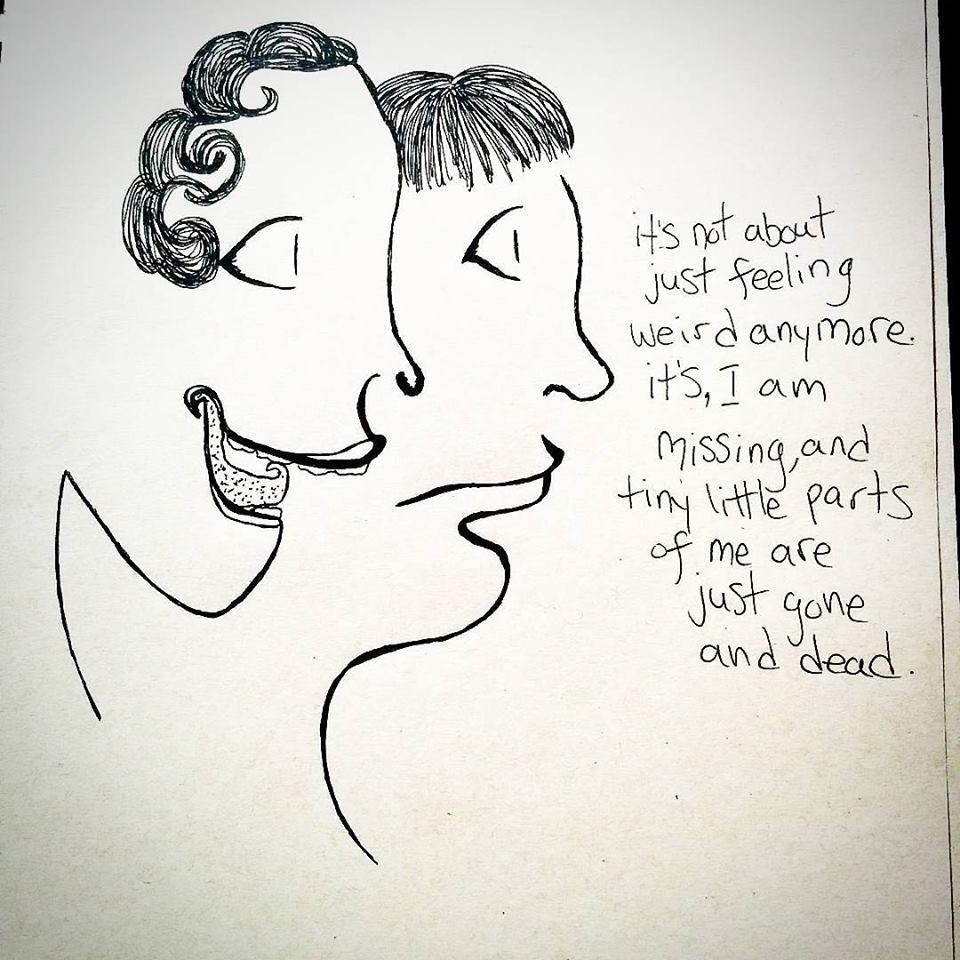 it's not about
just feeling
weird anymore.
it's, I am
missing, and
tiny little parts
of me are
just gone
and dead.